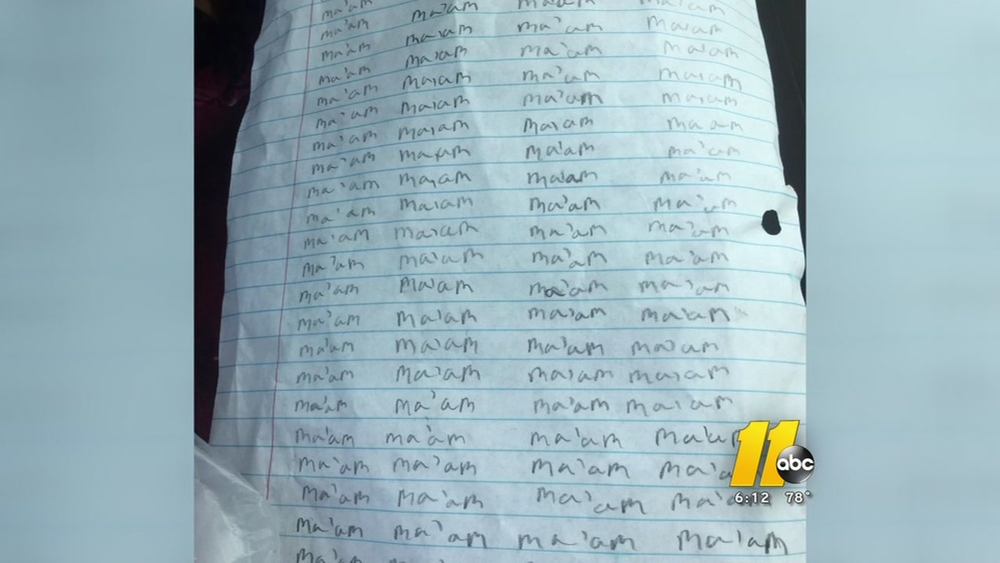 ma'am ma'am ma'am ma'am
ma'am ma'am ma'am ma'am
ma'am ma'am ma'am ma'am
ma'am ma'am ma'am ma'am
ma'am ma'am ma'am ma'am
ma'am ma'am ma'am ma'am
ma'am ma'am ma'am ma'am
ma'am ma'am ma'am ma'am
ma'am ma'am ma'am ma'am
ma'am ma'am ma'am ma'am
ma'am ma'am ma'am ma'am
ma'am ma'am ma'am ma'am
ma'am ma'am ma'am ma'am
ma'am ma'am ma'am ma'am
ma'am ma'am ma'am ma'am
ma'am ma'am ma'am ma'am
ma'am ma'am ma'am
ma'am ma'am ma'am
ma'am ma'am ma'am
ma'am ma'am ma'am ma'am
ma'am
11 abc
6:12 78°